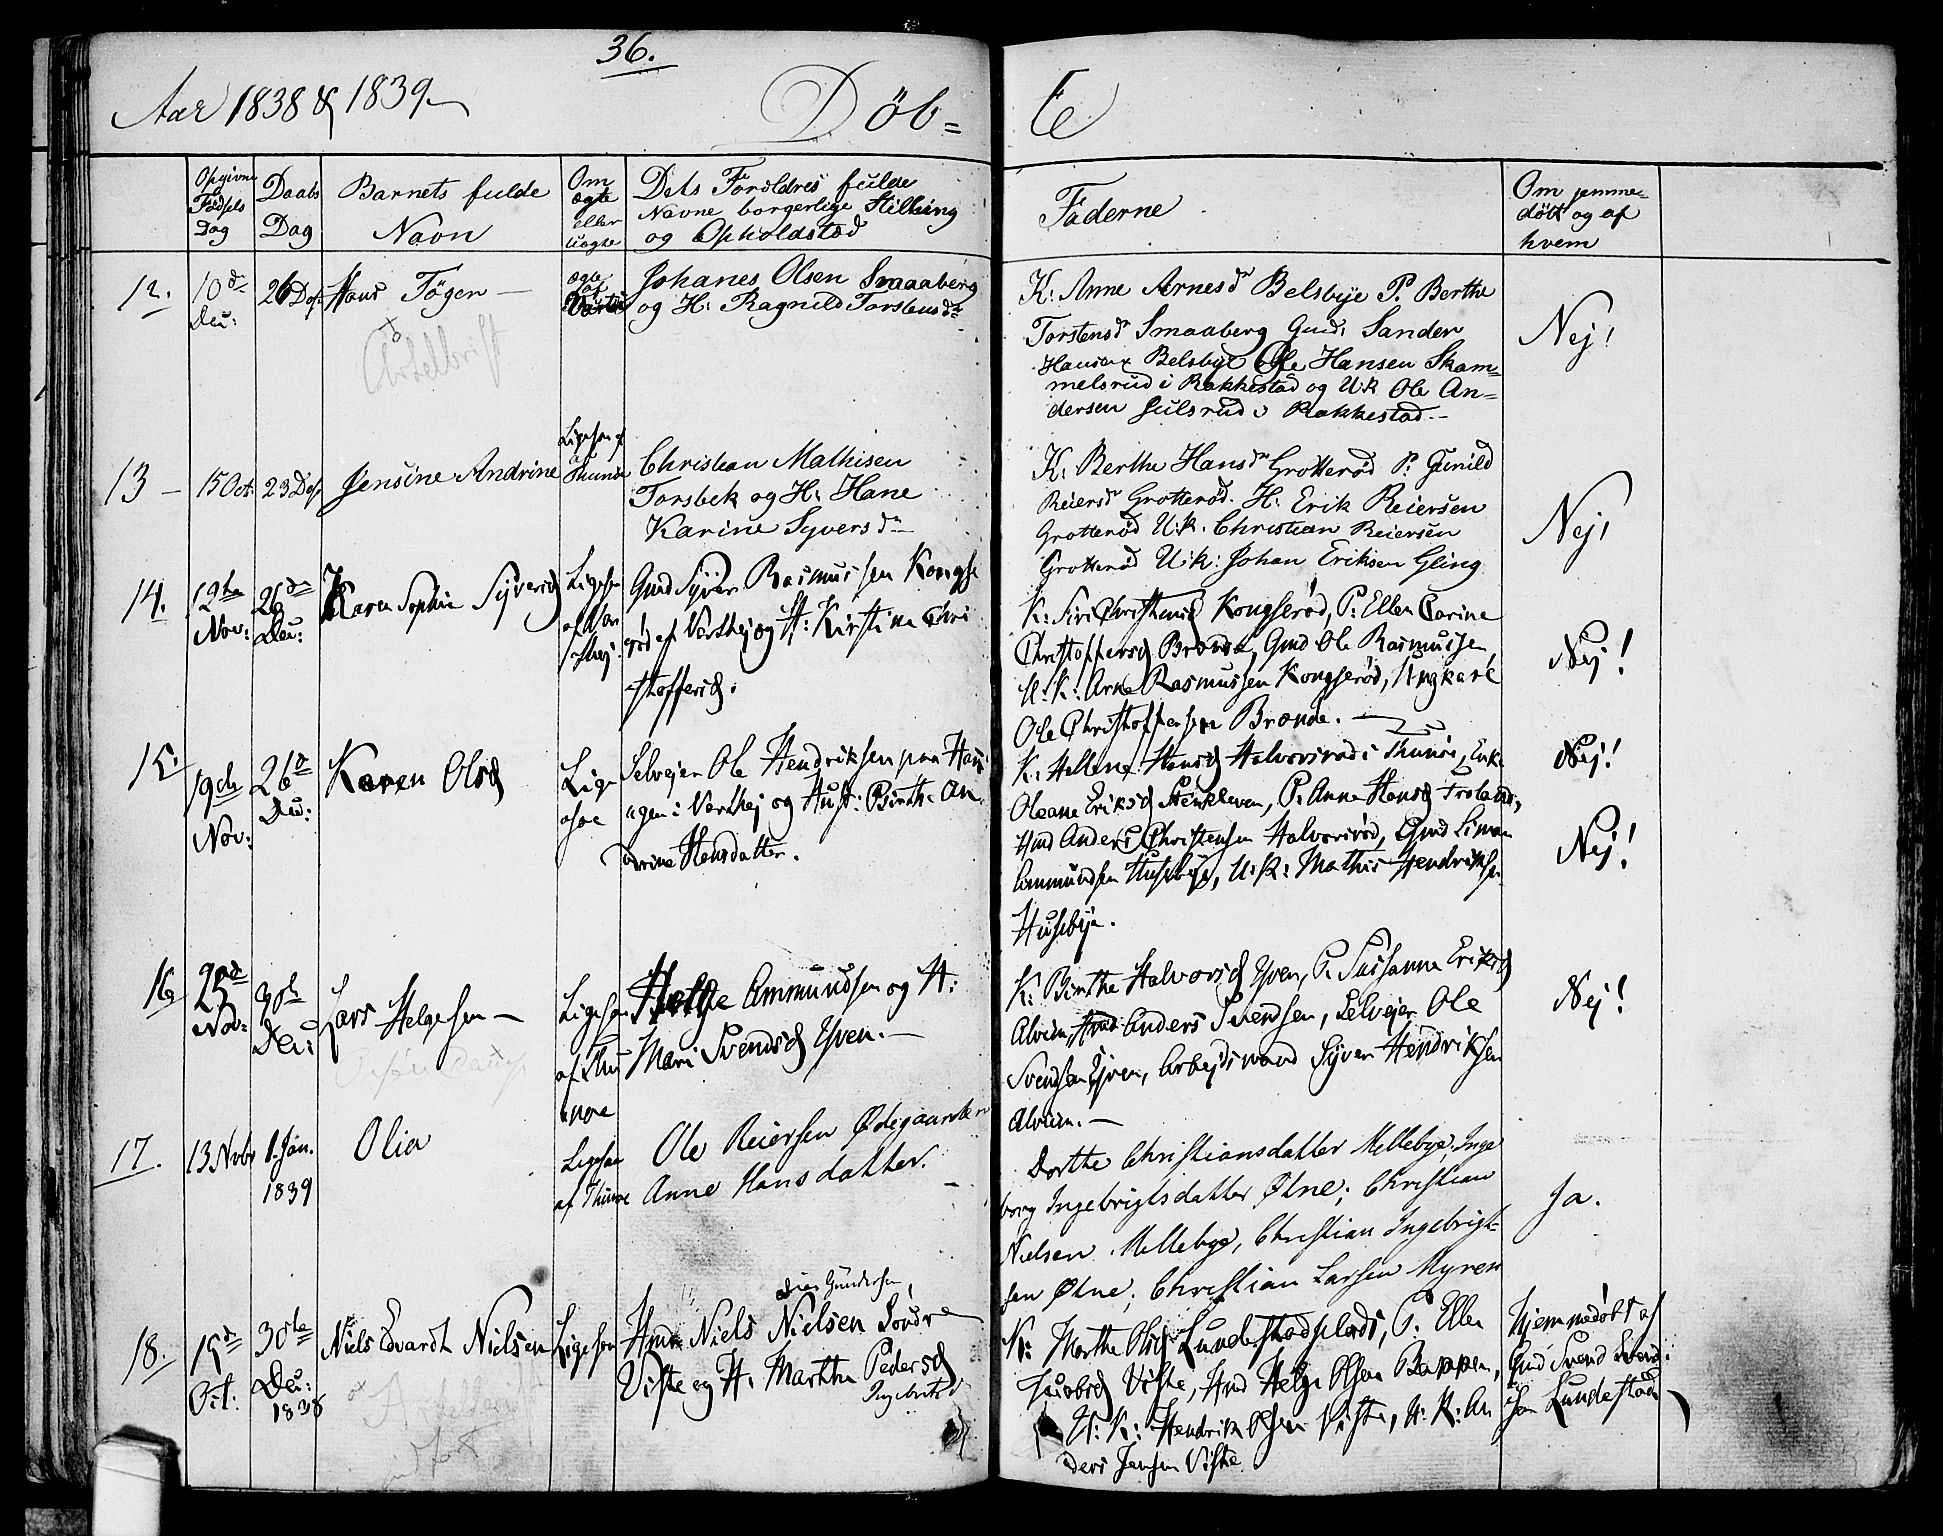 36.
Aar 1838 & 1839
Döb= te
Opgivne Fødsels Dag
Daabs Dag
Barnets fulde Navn
Om ægte eller uægte
Dets Forældres fulde Navne borgerlige Stilling og Opholdsted
Faderne
Om hjemmedøbt og af hvem
12.
10de
26 Des
Hans Tögen —
ægte af
Johanes Olsen Smaaberg
og H: Ragnild Torstensdr
K: Anne Arnesdr Belsbye P. Berthe
Torstensdr Smaaberg Gmd: Sander
Hansen Belsbye Ole Hansen Skam=
melsrud i Rakkestad og U:k Ole An=
dersen Julsrud i Rakkestad.—
Nej!
13 —
15 Oct:
23 Des
Jensine Andrine
Christian Mathisen
Torsbek og H: Hane
Karine Syversdr—
K: Berthe Hansdr Grotterød P: Gunild
Reiersdr Grotterød. H: Erik Reiersen
Grotterød U:k. Christian Reiersen
Grotterød U:k: Johan Eriksen Gling
Nej!
14.
12te
Nov:
26de
Karen Sophie Syversd
Ligesaa
af Var
Gmd Syver Rasmussen Kongse
rød af Varthej og H: Kirstine Chri
stoffersd.
K: Siri Kongserød, P: Ellen Carine
Christoffersd Brønde, Gmd Ole Rasmussen,
U: K: Arne Rasmussen Kongserød, Ungkarl
Ole Christoffersen Brønde. —
Nej!
15.
19de
Nov:
26d
Karen Olsd
Lige
Selvejer Ole Hendriksen paa Hau
gen i Varthej og Hust: Birthe An
drine Hansdatter.
K: Hellene Hansd Halvorsrød i Thunøe, Enke
Oleane Eriksd Stenkleven, P: Anne Hansd
Hmd Anders Christensen Halvorsrød, Gmd Simon
Ammundsen Husebye, U:K: Mathis Hendriksen
Husebye.
Nej!
Nej!
16
Nov:
30te
Lars Helgesen —
Ligesaa
Helge Ammundsen og H:
Mari Svendsd Yven. —
K: Birthe Halvorsd Yven, P. Sussanne Eriksd
Alvim, Anders Svendsen, Selvejer Ole
Svendsen Yven, Arbejdsmand Syver Hendriksen
Alvim. —
Nej!
17.
13 Novbr
1. Jan.
1839
Olia
Ligesaa
af Thunøe
Ole Reiersen Ødegaarden
Anne Hansdatter. —
Dorthe Christiansdatter Mellebye. Inge
borg Ingebrigtsdatter Øtne; Christian
Nielsen Mellebye, Christian Ingebrigt=
sen Øtne; Christian Larsen Myren
Ja.
18.
Oct:
30te
1838
Niels Edvardt Nielsen
Ligesaa
Gundersen,
Niels Nielsen Søndre
Viste og H: Marthe Pedersd
Ingebritsd
K: Marthe Olsd Lundestadplads, P. Ellen
Jacobsd Viste, Hmd Helge Olsen Bappen,
U: K: Hendrik Olsen Viste, U: K: An
ders Jensen Viste.
Hjemmedøbt af
Gmd Svend Svend
sen Lundestad